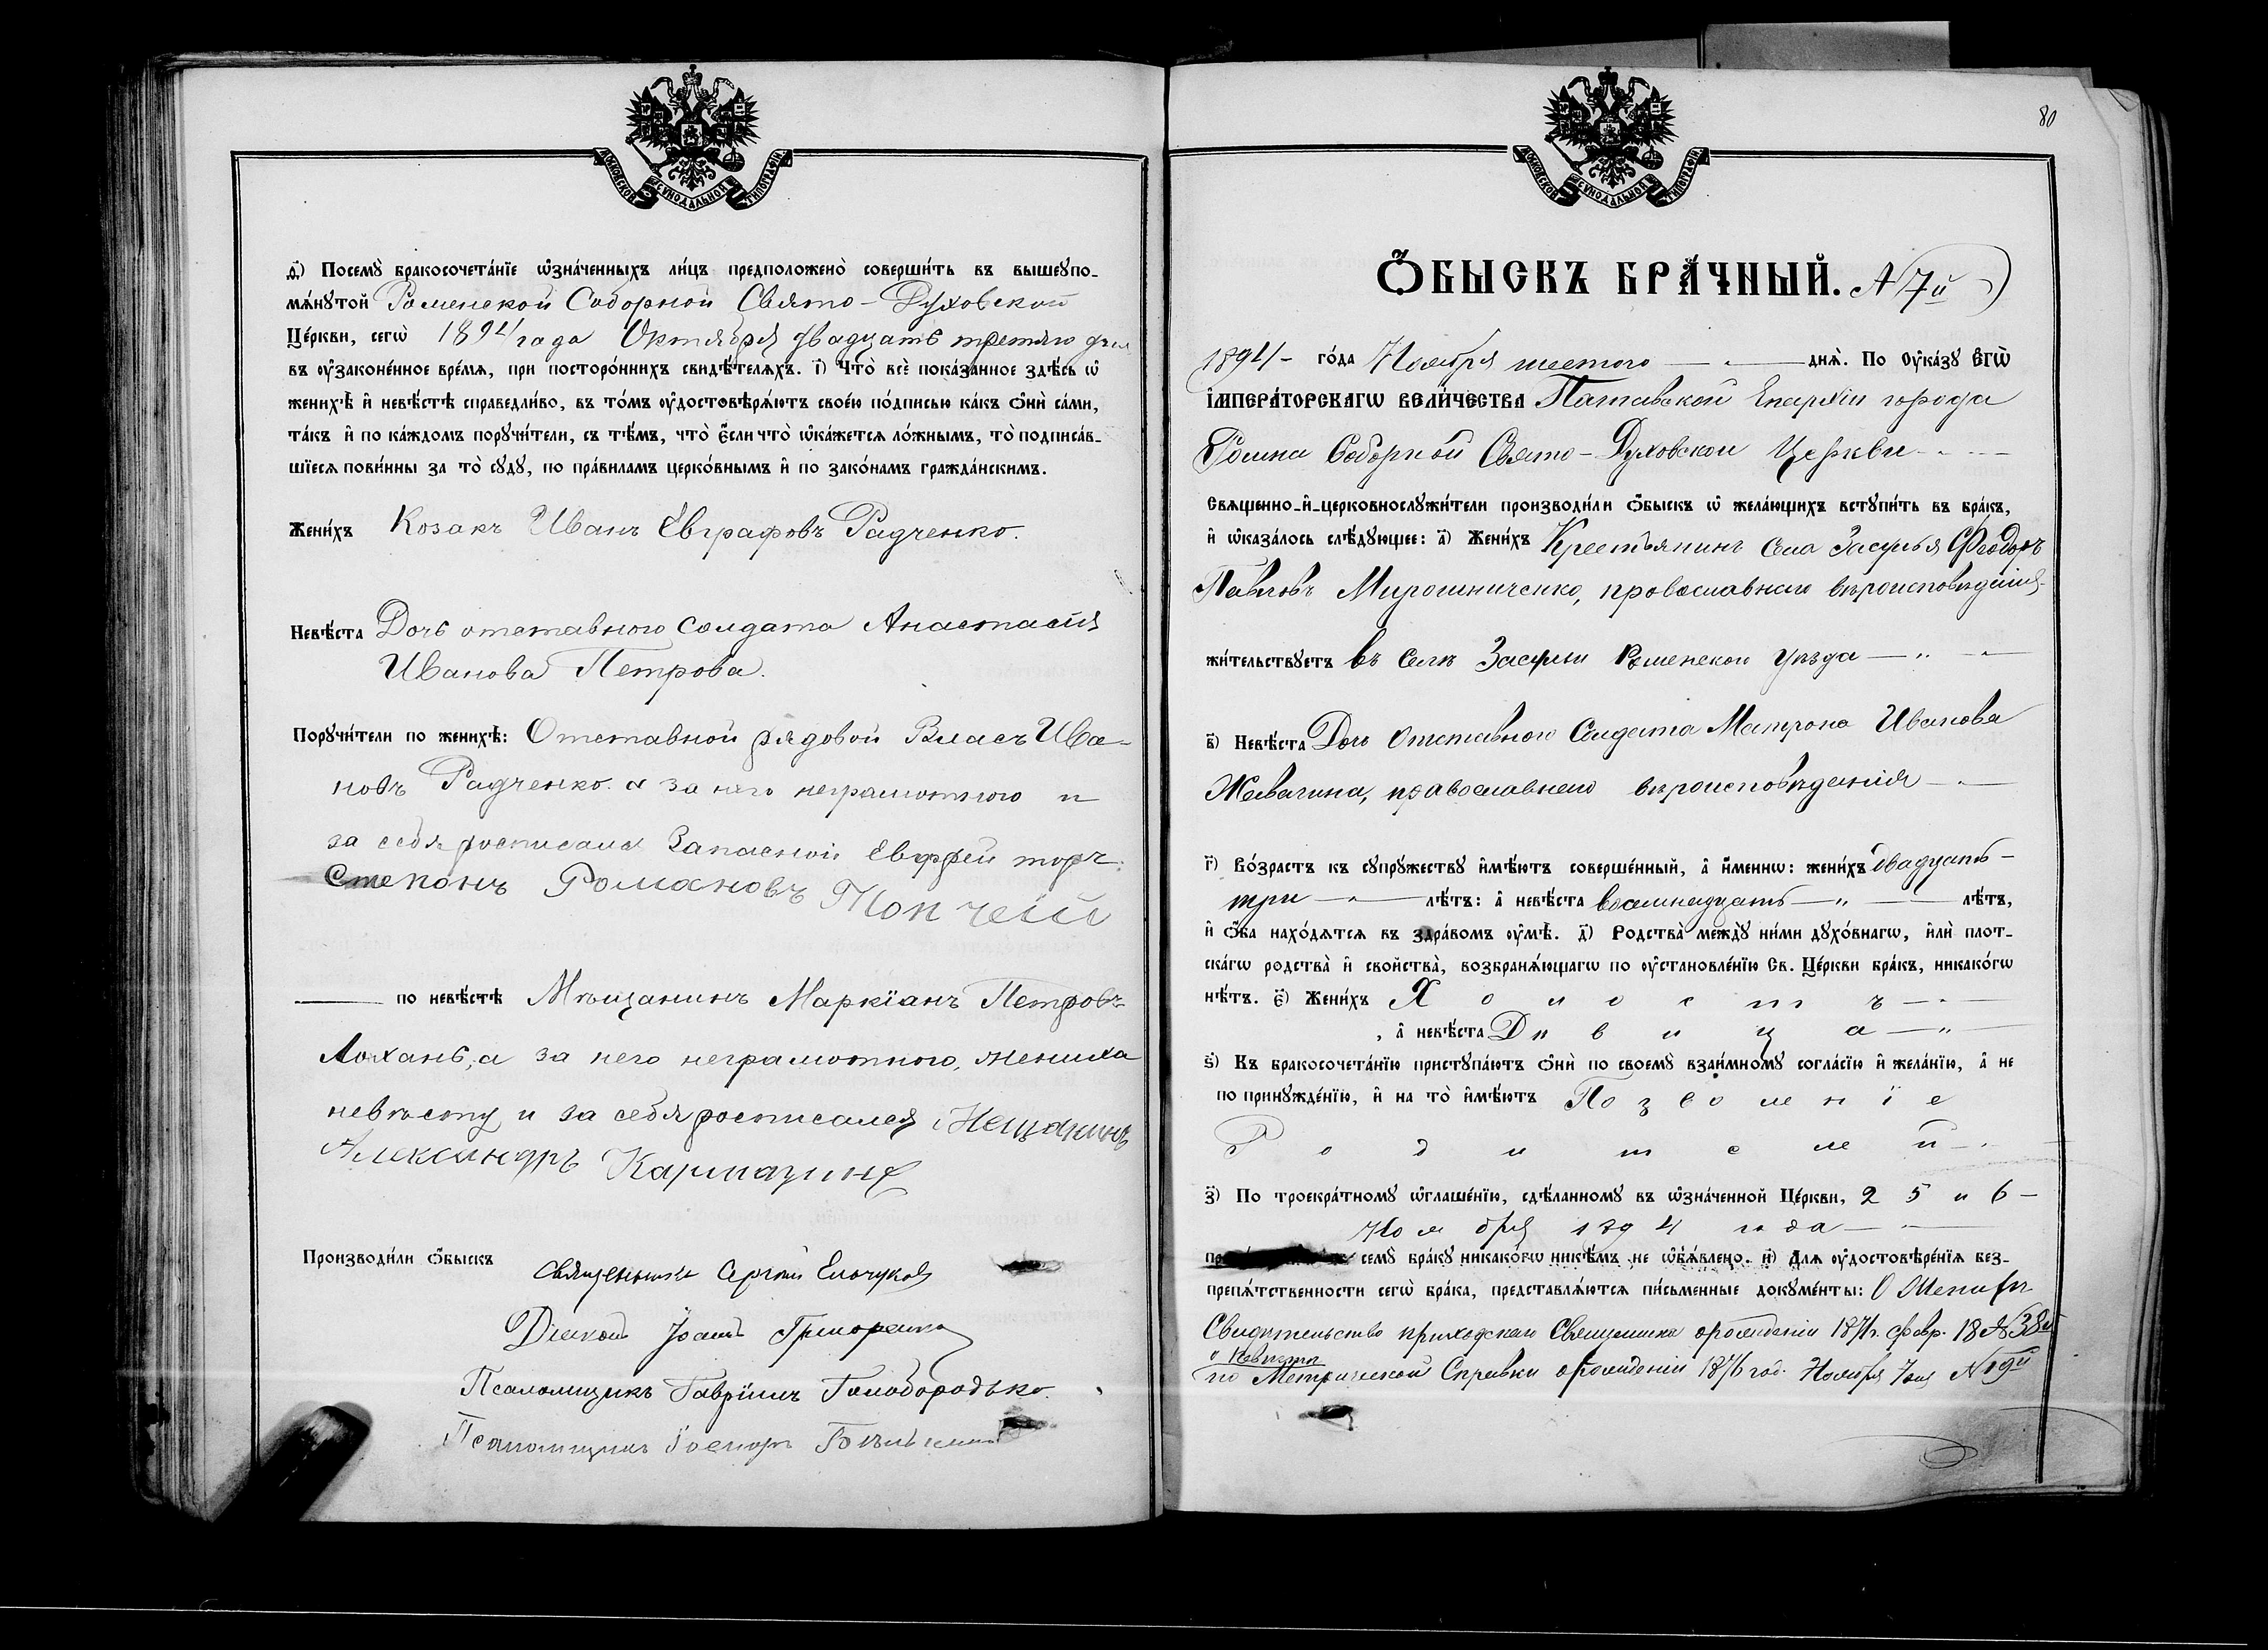 МОСКОВСКОЙ СѴНОДАЛЬНОЙ ТИПОГРАФІИ
ѳ҃) Посемꙋ̀ бракосочета́нїе ѡ҆зна́ченныхъ ли́цъ предположено̀ соверши́ть въ вышеꙋпо-
мѧ́нꙋтой Роменской Соборной Свято-Духовской
Це́ркви, сегѡ̀ 1894 года Октября двадцать третьяго дня
въ ᲂу҆законе́нное вре́мѧ, при посторо́ннихъ свидѣ́телѧхъ. і҃) Что̀ всѐ пока́занное здѣ́сь ѡ҆
женихѣ̀ и҆ невѣ́стѣ справедли́во, въ то́мъ ᲂу҆достовѣрѧ́ютъ свое́ю по́дписью ка́къ ѻ҆нѝ са́ми,
та́къ и҆ по ка́ждомъ порꙋчи́тели, съ тѣ́мъ, что̀ є҆́сли что̀ ѡ҆ка́жетсѧ ло́жнымъ, то̀ подписа́в-
шїесѧ пови́нны за то̀ сꙋдꙋ̀, по пра́виламъ церко́внымъ и҆ по зако́намъ гражда́нскимъ.
Жени́хъ Козакъ Иванъ Евграфовъ Радченко.
Невѣ́ста Дочь отставного солдата Анастасія
Иванова Петрова.
Порꙋчи́тели по женихѣ̀: Отставной рядовой Власъ Ива-
новъ Радченко. а за него неграмотного и
за себя росписался Запасной
Степанъ Романовъ
по невѣ́стѣ Мѣщанинъ Маркіанъ Петровъ
Лохань, а за него неграмотного, жениха
невѣсту и за себя росписался Мещанинъ
Александръ Кармазинъ
Производи́ли ѻ҆́быскъ Священникъ Сергій
Діаконъ Іоаннъ Григоренко
Псаломщикъ Гавріилъ Голобородько.
Псаломщикъ
80
МОСКОВСКОЙ СѴНОДАЛЬНОЙ ТИПОГРАФІИ
Ѻ҆́БЫСКЪ БРА́ЧНЫЙ. N 7й
1894 го́да Ноября шестого днѧ̀. По ᲂу҆ка́зꙋ Є҆гѡ̀
І҆мпера́торскагѡ вели́чества Полтавской Епархіи города
Ромна Соборной Свято-Духовской Церкви
Свѧще́нно-и҆-церковнослꙋжи́тели производи́ли ѻ҆́быскъ ѡ҆ жела́ющихъ встꙋпи́ть въ бра́къ,
и҆ ѡ҆каза́лось слѣ́дꙋющее: а҃) Жени́хъ Крестьянинъ села Засулья Феодоръ
Павловъ Мирошниченко, православнаго вѣроисповѣданія
жи́тельствꙋетъ въ селѣ Засульи Роменскои уѣзда
в҃) Невѣ́ста Дочь Отставного Солдата Матрона Иванова
Жевагина, православнаго вѣроисповѣданія
г҃) Во́зрастъ къ сꙋпрꙋ́жествꙋ и҆мѣ́ютъ соверше́нный, а҆ и҆́меннѡ: жени́хъ двадцать
три лѣ́тъ: а҆ невѣ́ста восемнадцать лѣ́тъ,
и҆ ѻ҆́ба нахо́дѧтсѧ въ здра́вомъ ᲂу҆мѣ̀. д҃) Родства̀ междꙋ̀ ни́ми дꙋхо́внагѡ, и҆лѝ плот-
ска́гѡ родства̀ и҆ свойства̀, возбранѧ́ющагѡ по ᲂу҆становле́нїю Св. Це́ркви бра́къ, никако́гѡ
нѣ́тъ. є҃) Жени́хъ Холостъ
, а҆ невѣ́ста Дѣвица
ѕ҃) Къ бракосочета́нїю пристꙋпа́ютъ ѻ҆нѝ по своемꙋ̀ взаи́мномꙋ согла́сїю и҆ жела́нїю, а҆ не
по принꙋжде́нїю, и҆ на то̀ и҆мѣ́ютъ Позволеніе
Родителей
з҃) По троекра́тномꙋ ѡ҆глаше́нїю, сдѣ́ланномꙋ въ ѡ҆зна́ченной Це́ркви, 2 5 и 6
Ноября 1894 года
семꙋ̀ бра́кꙋ никако́гѡ никѣ́мъ не ѡ҆б̾ѧ́влено. и҃) Длѧ ᲂу҆достовѣре́нїѧ без-
препѧ́тственности сегѡ̀ бра́ка, представлѧ́ютсѧ пи́сьменные докꙋме́нты: О Женихѣ
Свидѣтельство приходскаго Священника о рожденіи 1871 г. февр. 18 N 38й
о Невѣстѣ
по Метрической Справки о рожденіи 1876 год. Ноября 7 дня N 19й